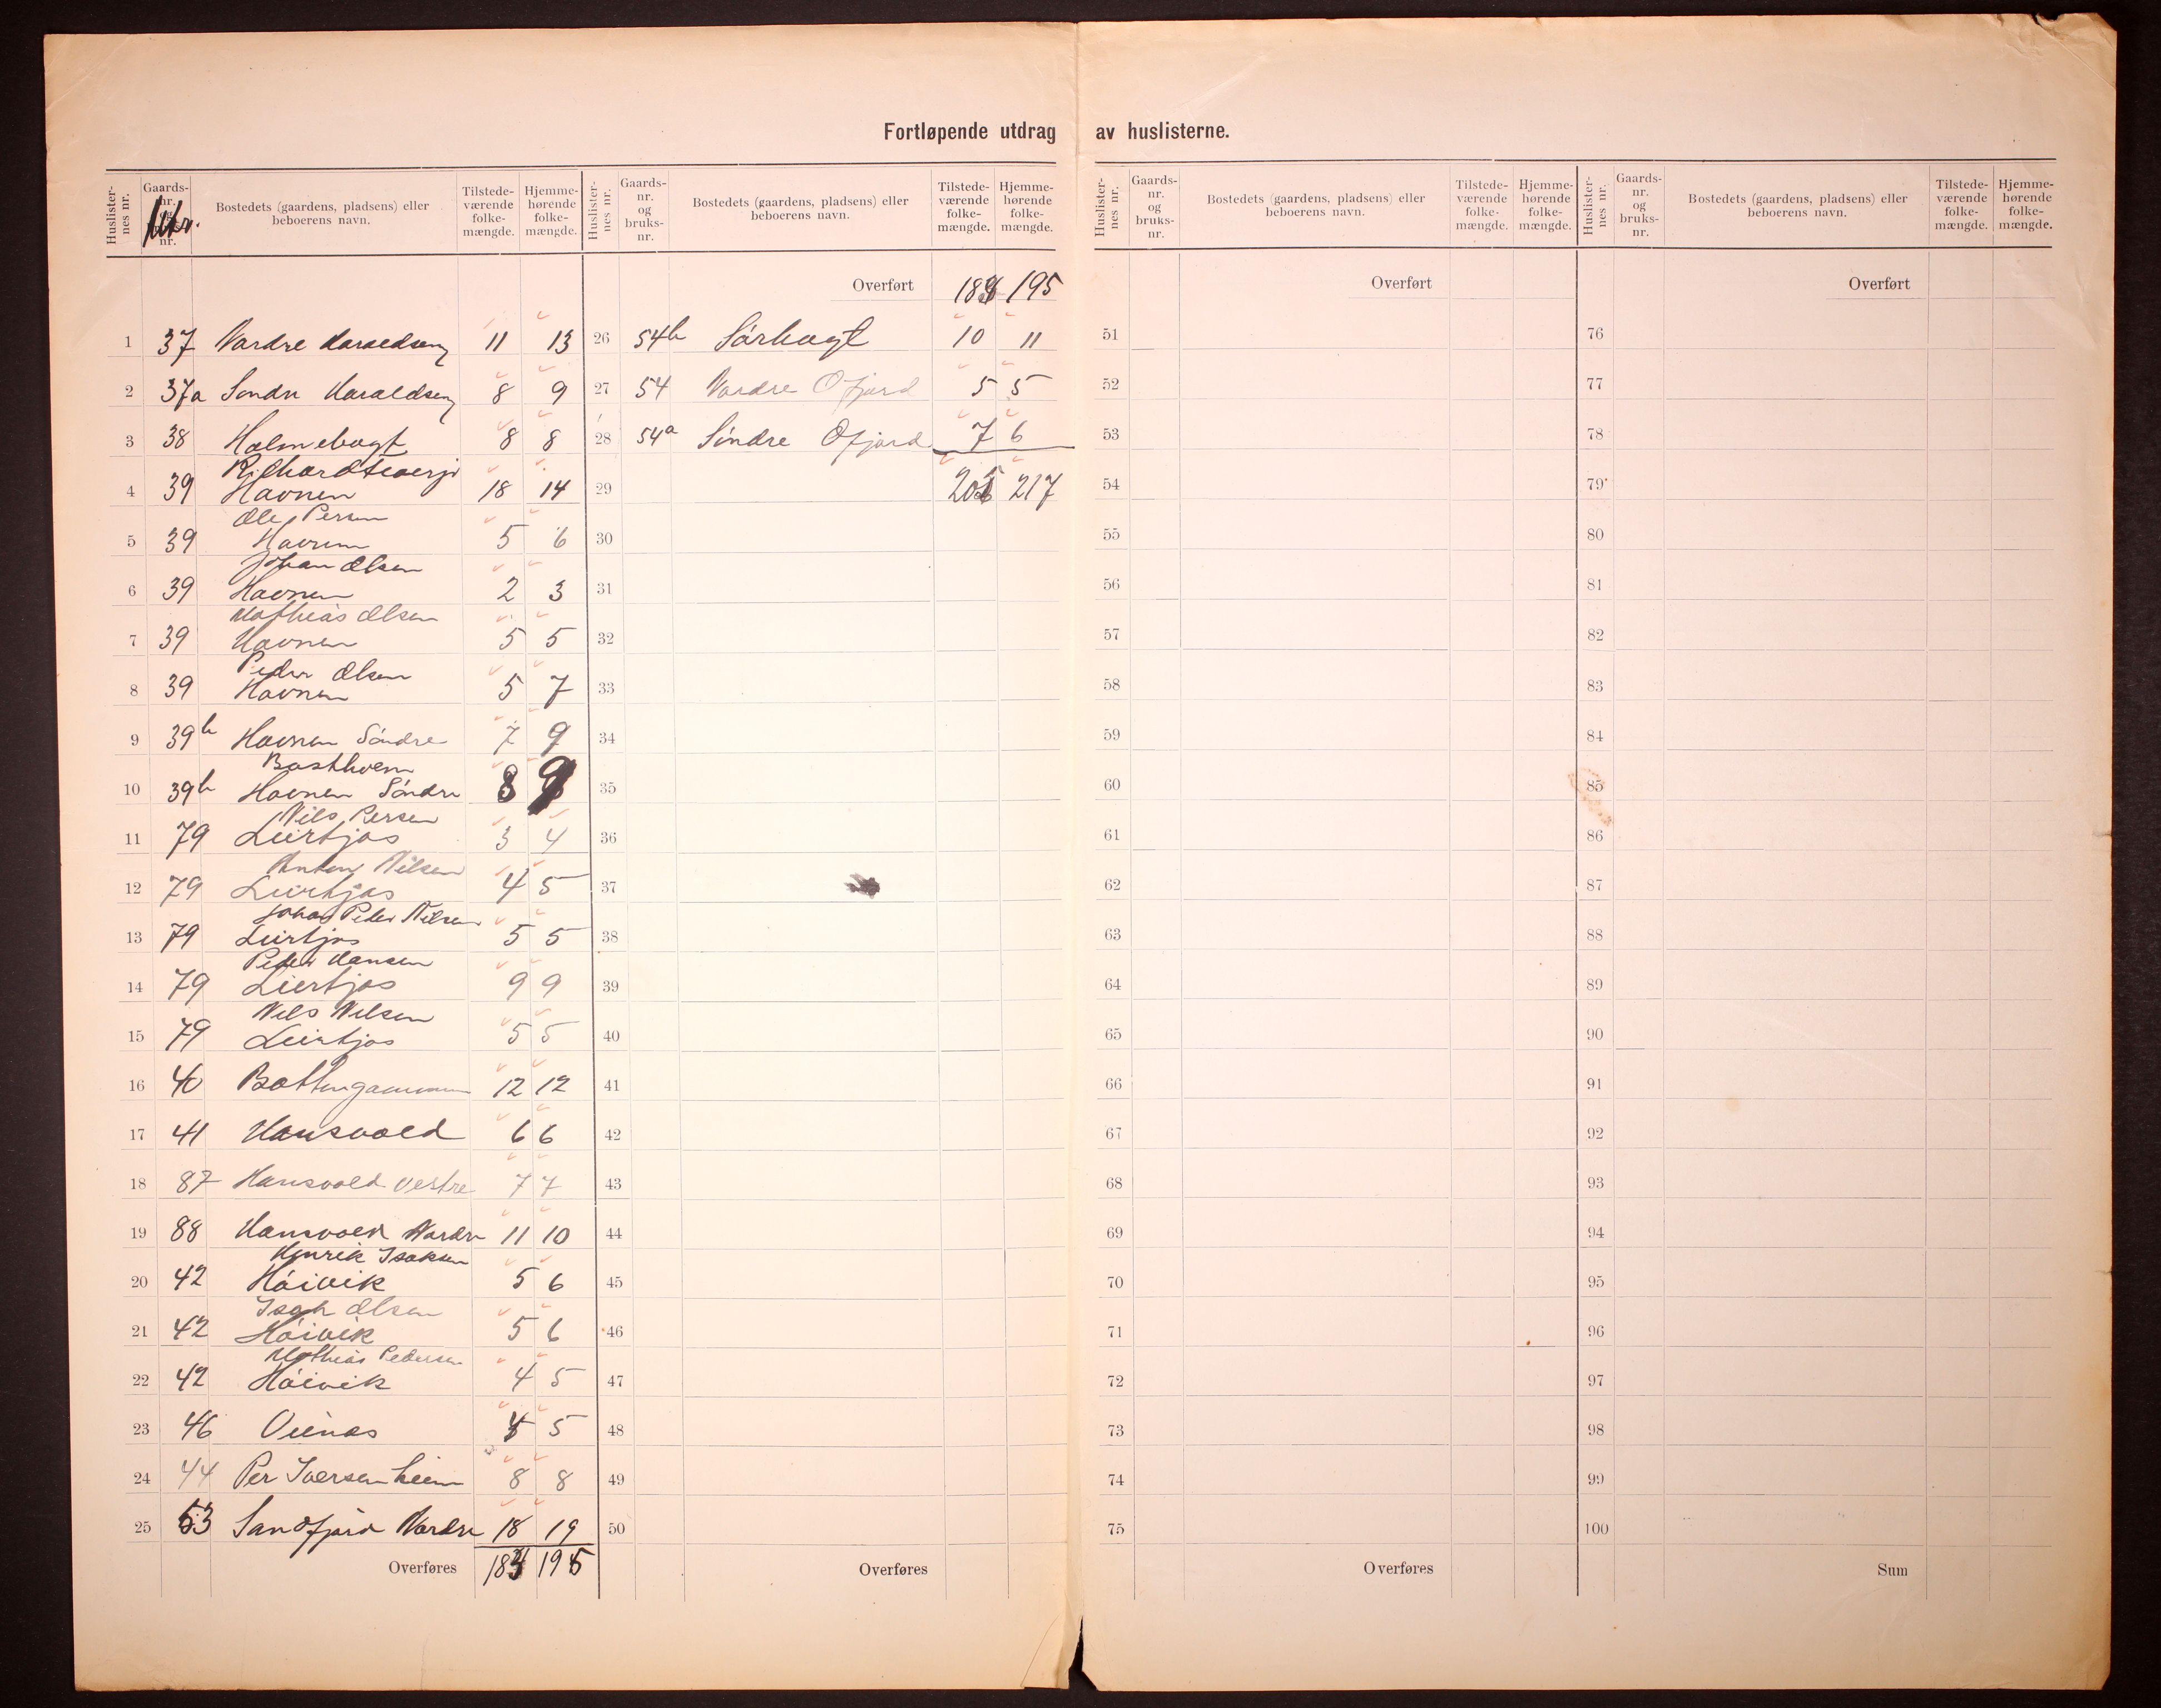 Fortløpende utdrag av huslisterne.
Huslister-nes nr. Gaards-nr. og bruks-nr. Bostedets (gaardens, pladsens) eller beboerens navn. Tilstede-værende folke-mængde. Hjemme-hørende folke-mængde.
Huslister-nes nr. Gaards-nr. og bruks-nr. Bostedets (gaardens, pladsens) eller beboerens navn. Tilstede-værende folke-mængde. Hjemme-hørende folke-mængde.
Huslister-nes nr. Gaards-nr. og bruks-nr. Bostedets (gaardens, pladsens) eller beboerens navn. Tilstede-værende folke-mængde. Hjemme-hørende folke-mængde.
Huslister-nes nr. Gaards-nr. og bruks-nr. Bostedets (gaardens, pladsens) eller beboerens navn. Tilstede-værende folke-mængde. Hjemme-hørende folke-mængde.
1 37 Nordre Haraldseng 11 13
2 37a Søndre Haraldseng 8 9
3 38 Holmebugt 8 8
4 39 Havnen 18 14
Ole Persen
5 39 Havnen 5 6
Johan Olsen
6 39 Havnen 2 3
Mathias Olsen
7 39 Havnen 5 5
Peder Olsen
8 39 Havnen 5 7
9 39b Havnen Söndre 7 9
10 39b Havnen Söndre 8
Nils Persen
11 79 Leirbjos 3 4
Anton Nilsen
12 79 Leirbjos 4 5
Johan Peder Nilsen
13 79 Leirbjos 5 5
Peder Hansen
14 79 Leirbjos 9 9
Nils Nilsen
15 79 Leirbjos 5 5
16 40 Bottengammen 12 12
17 41 Hansvold 6 6
18 87 Hansvold Vestre 7 7
19 88 Hansvold Nordre 11 10
Henrik Isaksen
20 42 Höivik 5 6
Isak Olsen
21 42 Höivik 5 6
Mathias Pedersen
22 42 Höivik 4 5
23 46 5
24 44 Per Iversen heim 8 8
25 53 Sandfjord Nordre 18 19
Overføres 195
Overført 195
26 54b Sörbugt 10 11
27 54 Nordre Ofjord 5 5
28 54a Söndre Ofjord 7 6
29 217
30
31
32
33
34
35
36
37
38
39
40
41
42
43
44
45
46
47
48
49
50
Overføres
Overført
51
52
53
54
55
56
57
58
59
60
61
62
63
64
65
66
67
68
69
70
71
72
73
74
75
Overføres
Overført
76
77
78
79
80
81
82
83
84
85
86
87
88
89
90
91
92
93
94
95
96
97
98
99
100
Sum